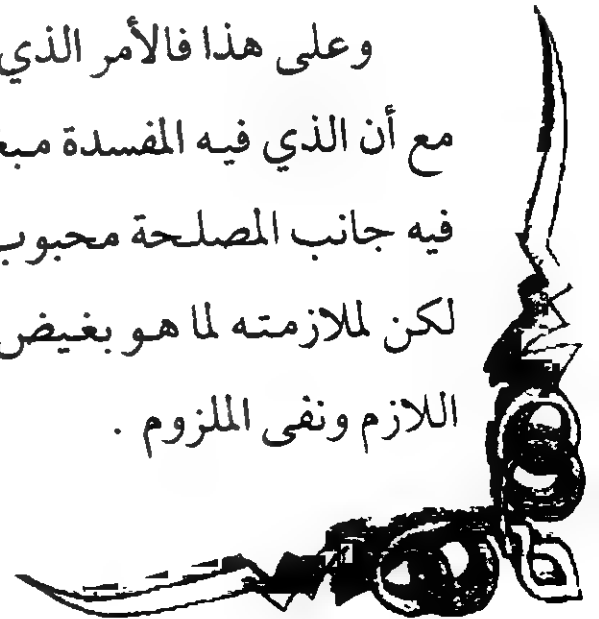 وعلى هذا فالأمر الذي
مع أن الذي فيه المفسدة
فيه جانب المصلحة محبوب
لكن لملازمته لما هو بغيض
اللازم ونفى الملزوم .